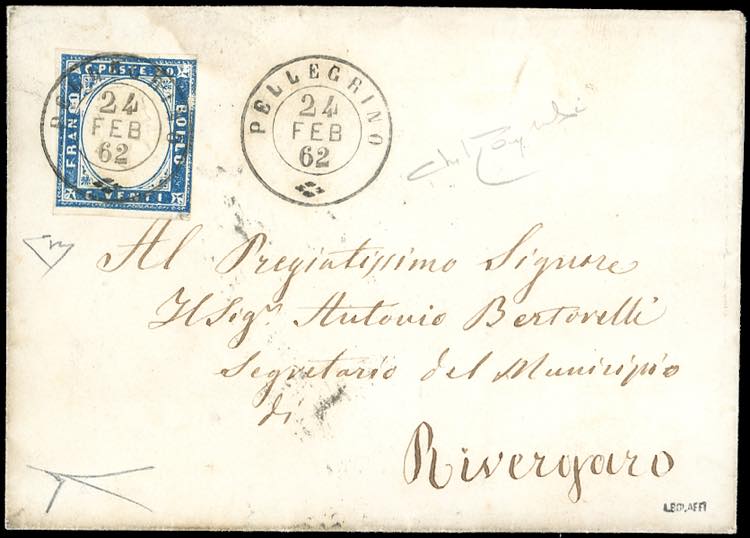 FRANCO
POSTE 20
BOLLO
C. VENTI
PELLEGRINO
24
FEB
62
PELLEGRINO
24
FEB
62
Al Pregiatissimo Signore
Il Sigʳ Antonio Bertorelli
Segretario del Municipio
di
Rivergaro
A.BOLAFFI